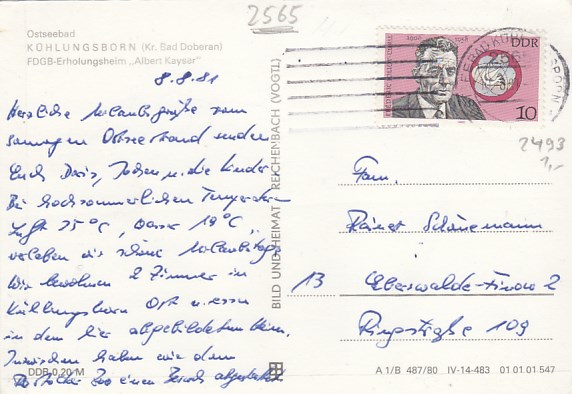 2565
Ostseebad
KÜHLUNGSBORN (Kr. Bad Doberan)
FDGB-Erholungsheim „Albert Kayser"
8.8.81
Herzliche Urlaubsgrüße vom
sonnigen Ostseestrand senden
Euch Doris, Jochen u. die Kinder.
Bei hochsommerlichen Temperaturen
Luft 25°C, Wasser 19°C,
verleben wir schöne Urlaubstage
Wir bewohnen 2 Zimmer in
Kühlungsborn Ost u. essen
in dem hier abgebildeten Heim.
Inzwischen haben wir dem
Rostocker Zoo einen Besuch abgestattet.
DDB 0,20 M
BILD UND HEIMAT REICHENBACH (VOGTL)
DDR
10
2493
1,-
Fam.
Rainer Schünemann
13 Eberswalde-Finow 2
Ringstraße 109
A 1/B 487/80 IV-14-483 01.01.01.547